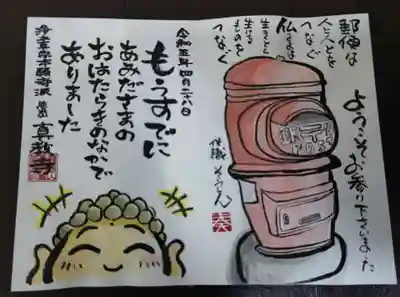 郵便は
人と人とを
つなぐ
仏さまは
生きとし
生ける
ものを
つなぐ
ようこそお参り下さいました
住職
奏
令和五年四月二十八日
もうすでに
あみださまの
おはたらきのなかで
ありました
浄土真宗本願寺派
真教寺